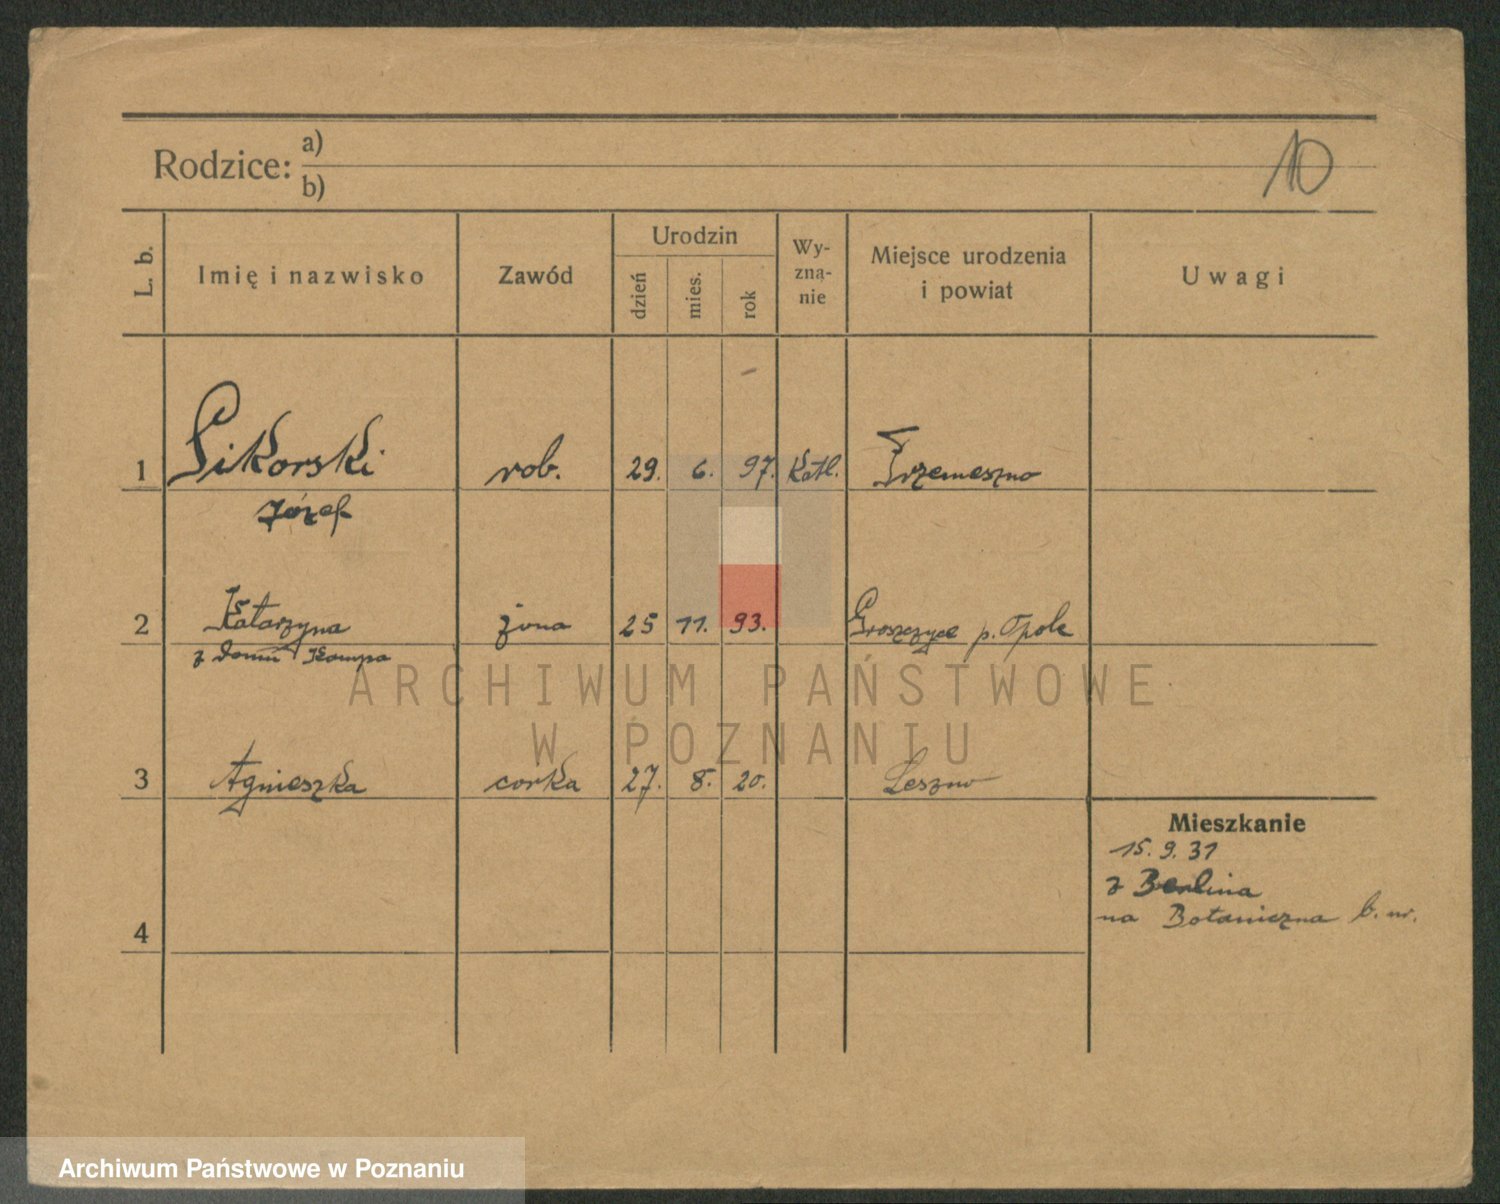 Rodzice: a)
b)
10
L. b.
Imię i nazwisko
Zawód
Urodzin
dzień
mies.
rok
Wy-
zna-
nie
Miejsce urodzenia
i powiat
Uwagi
1 Sikorski rob. 29. 6. 97. Katl. Trzemeszno
Józef
2 Katarzyna żona 25 11. 93. Groszczyce p. Opole
z domu Kampa
3 Agnieszka corka 27. 8. 20. Leszno
Mieszkanie
15. 9. 31
z Berlina
na Botaniczna b. nr.
4
ARCHIWUM PAŃSTWOWE
W POZNANIU
Archiwum Państwowe w Poznaniu